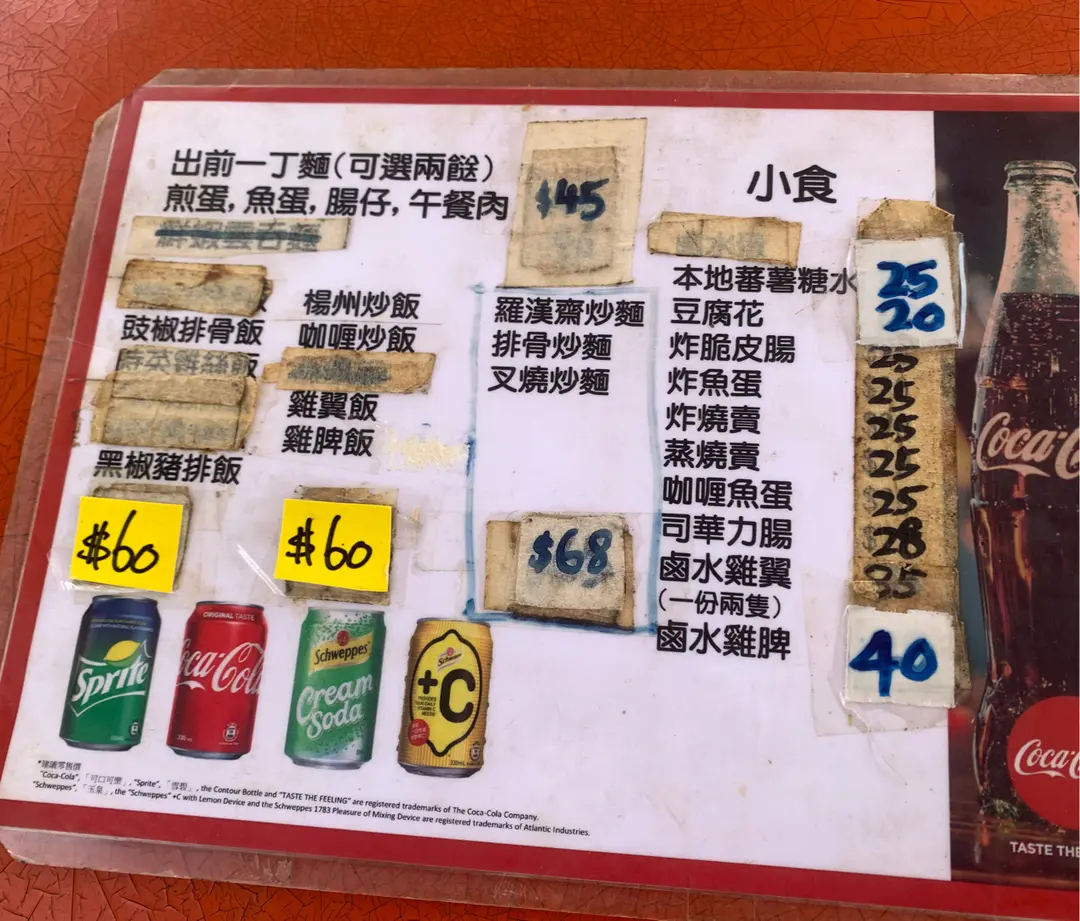 出前一丁麵(可選兩餸)
煎蛋, 魚蛋, 腸仔, 午餐肉
$45
豉椒排骨飯
黑椒豬排飯
$60
楊州炒飯
咖喱炒飯
雞翼飯
雞脾飯
$60
羅漢齋炒麵
排骨炒麵
叉燒炒麵
$68
小食
本地蕃薯糖水 25
豆腐花 20
炸脆皮腸 25
炸魚蛋 25
炸燒賣 25
蒸燒賣 25
咖喱魚蛋 25
司華力腸 28
鹵水雞翼 35
(一份兩隻)
鹵水雞脾 40
Sprite
ORIGINAL TASTE
Coca-Cola
Schweppes
Cream Soda
+C
*建議零售價
"Coca-Cola", 「可口可樂」, "Sprite", 「雪碧」, the Contour Bottle and "TASTE THE FEELING" are registered trademarks of The Coca-Cola Company.
"Schweppes", 「玉泉」, the "Schweppes" +C with Lemon Device and the Schweppes 1783 Pleasure of Mixing Device are registered trademarks of Atlantic Industries.
Coca-C
Coca-C
TASTE THE